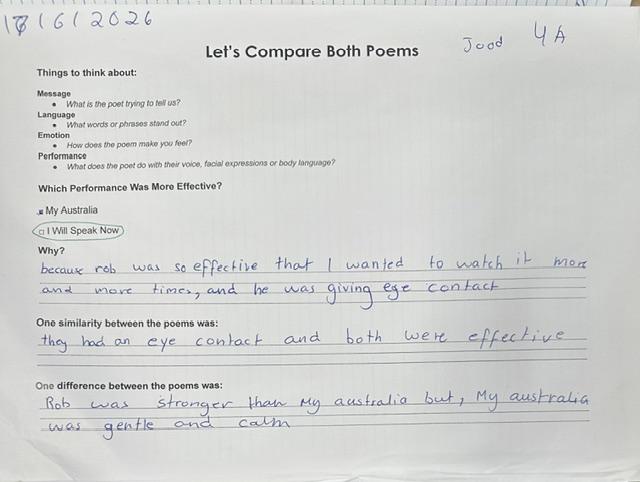 17/6/2026
Let's Compare Both Poems
Jood 4A
Things to think about:
Message
• What is the poet trying to tell us?
Language
• What words or phrases stand out?
Emotion
• How does the poem make you feel?
Performance
• What does the poet do with their voice, facial expressions or body language?
Which Performance Was More Effective?
My Australia
I Will Speak Now
Why?
because rob was so effective that I wanted to watch it more
and more times, and he was giving eye contact
One similarity between the poems was:
they had an eye contact and both were effective
One difference between the poems was:
Rob was stronger than My australia but, My australia
was gentle and calm